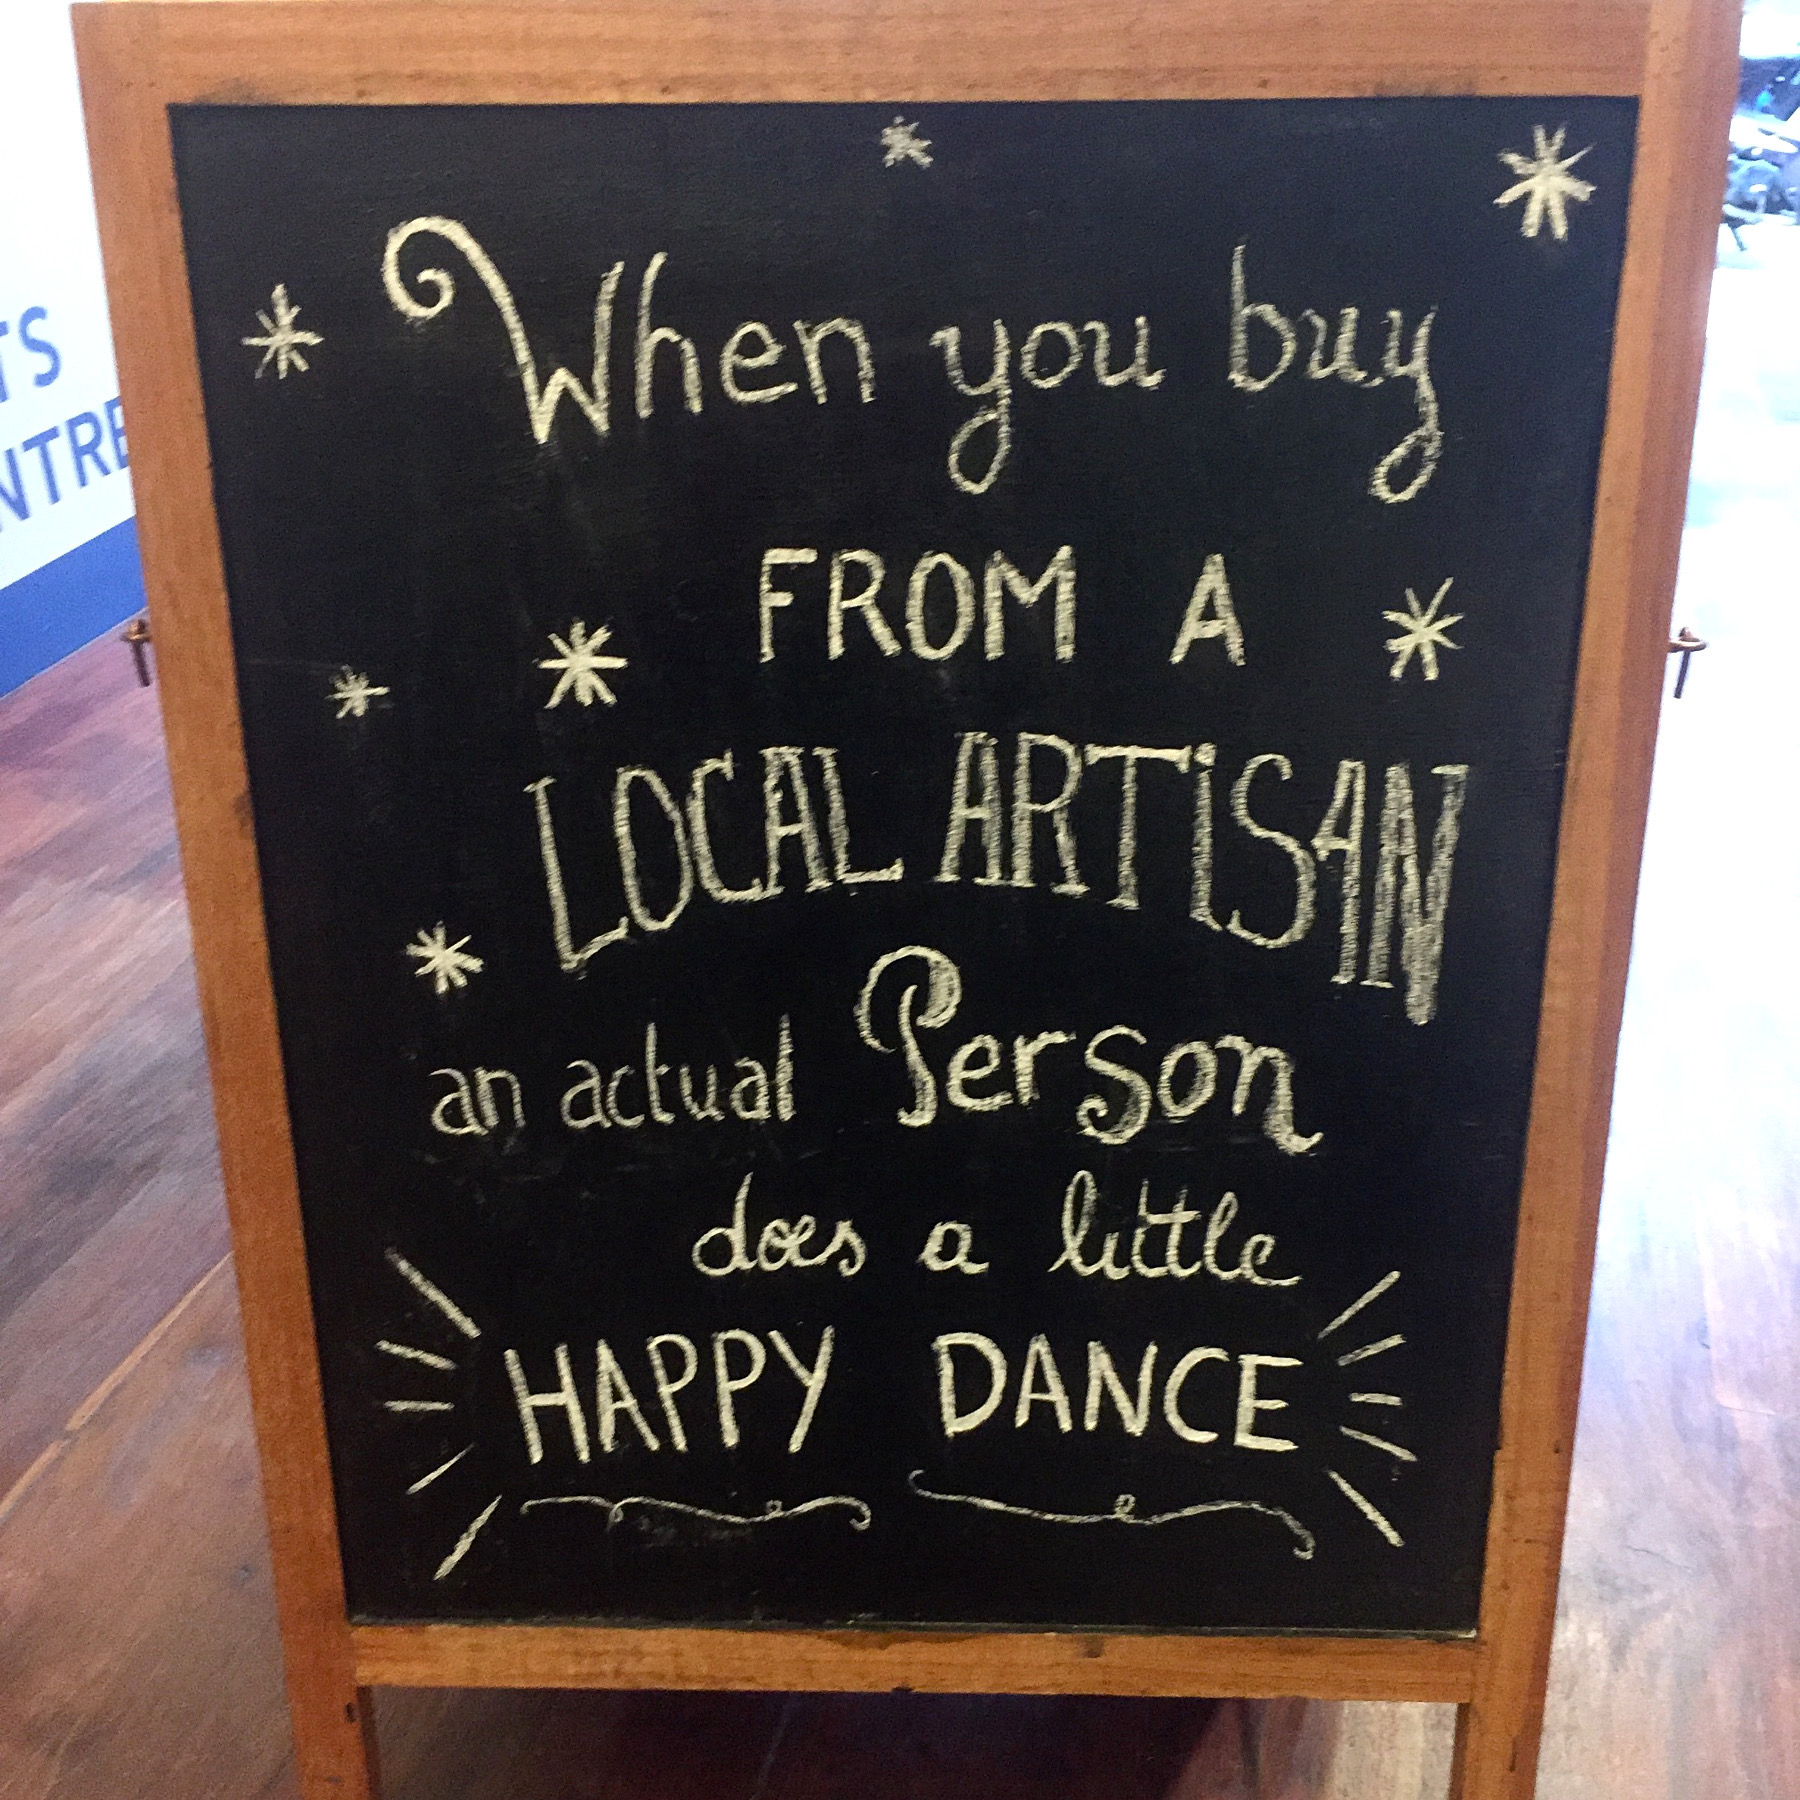 When you buy
FROM A
LOCAL ARTiSAN
an actual Person
does a little
HAPPY DANCE
TS
NTRE